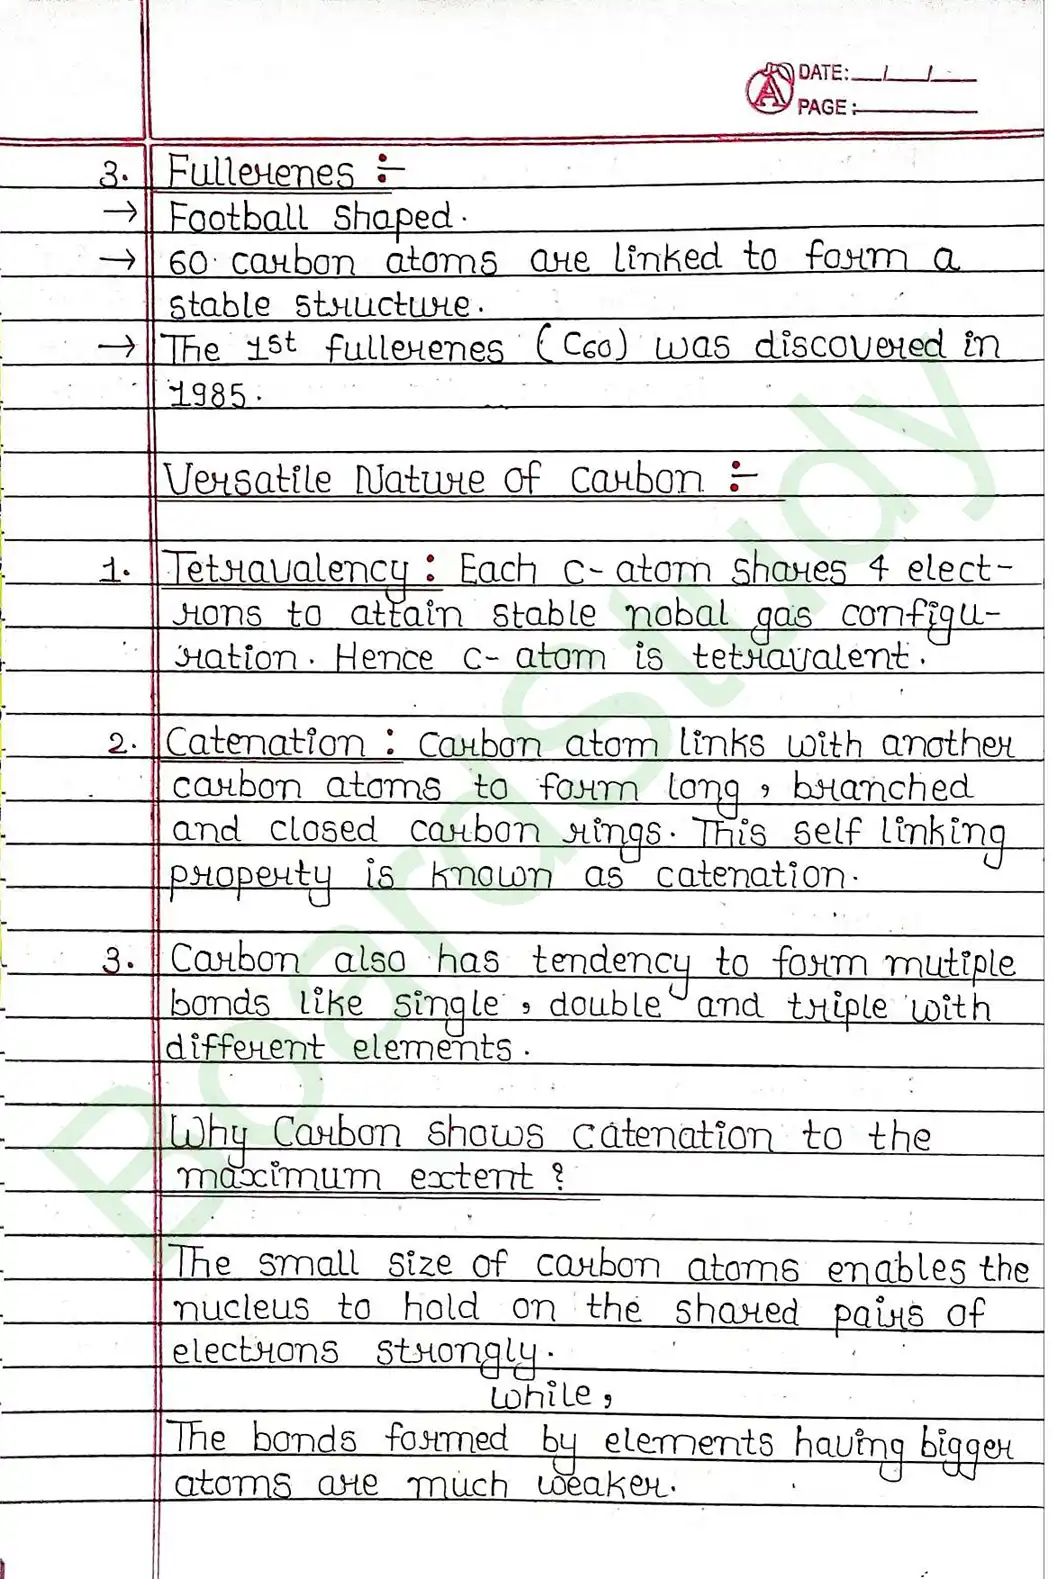 DATE: / /
PAGE:
3. Fullerenes :-
→ Football shaped.
→ 60 carbon atoms are linked to form a
stable structure.
→ The 1st fullerenes (C60) was discovered in
1985.
Versatile Nature of Carbon :-
1. Tetravalency : Each c-atom shares 4 elect-
rons to attain stable nobal gas configu-
ration. Hence c-atom is tetravalent.
2. Catenation : Carbon atom links with another
carbon atoms to form long, branched
and closed carbon rings. This self linking
property is known as catenation.
3. Carbon also has tendency to form mutiple
bonds like single, double and triple with
different elements.
Why Carbon shows catenation to the
maximum extent ?
The small size of carbon atoms enables the
nucleus to hold on the shared pairs of
electrons strongly.
while,
The bonds formed by elements having bigger
atoms are much weaker.
BoardStudy